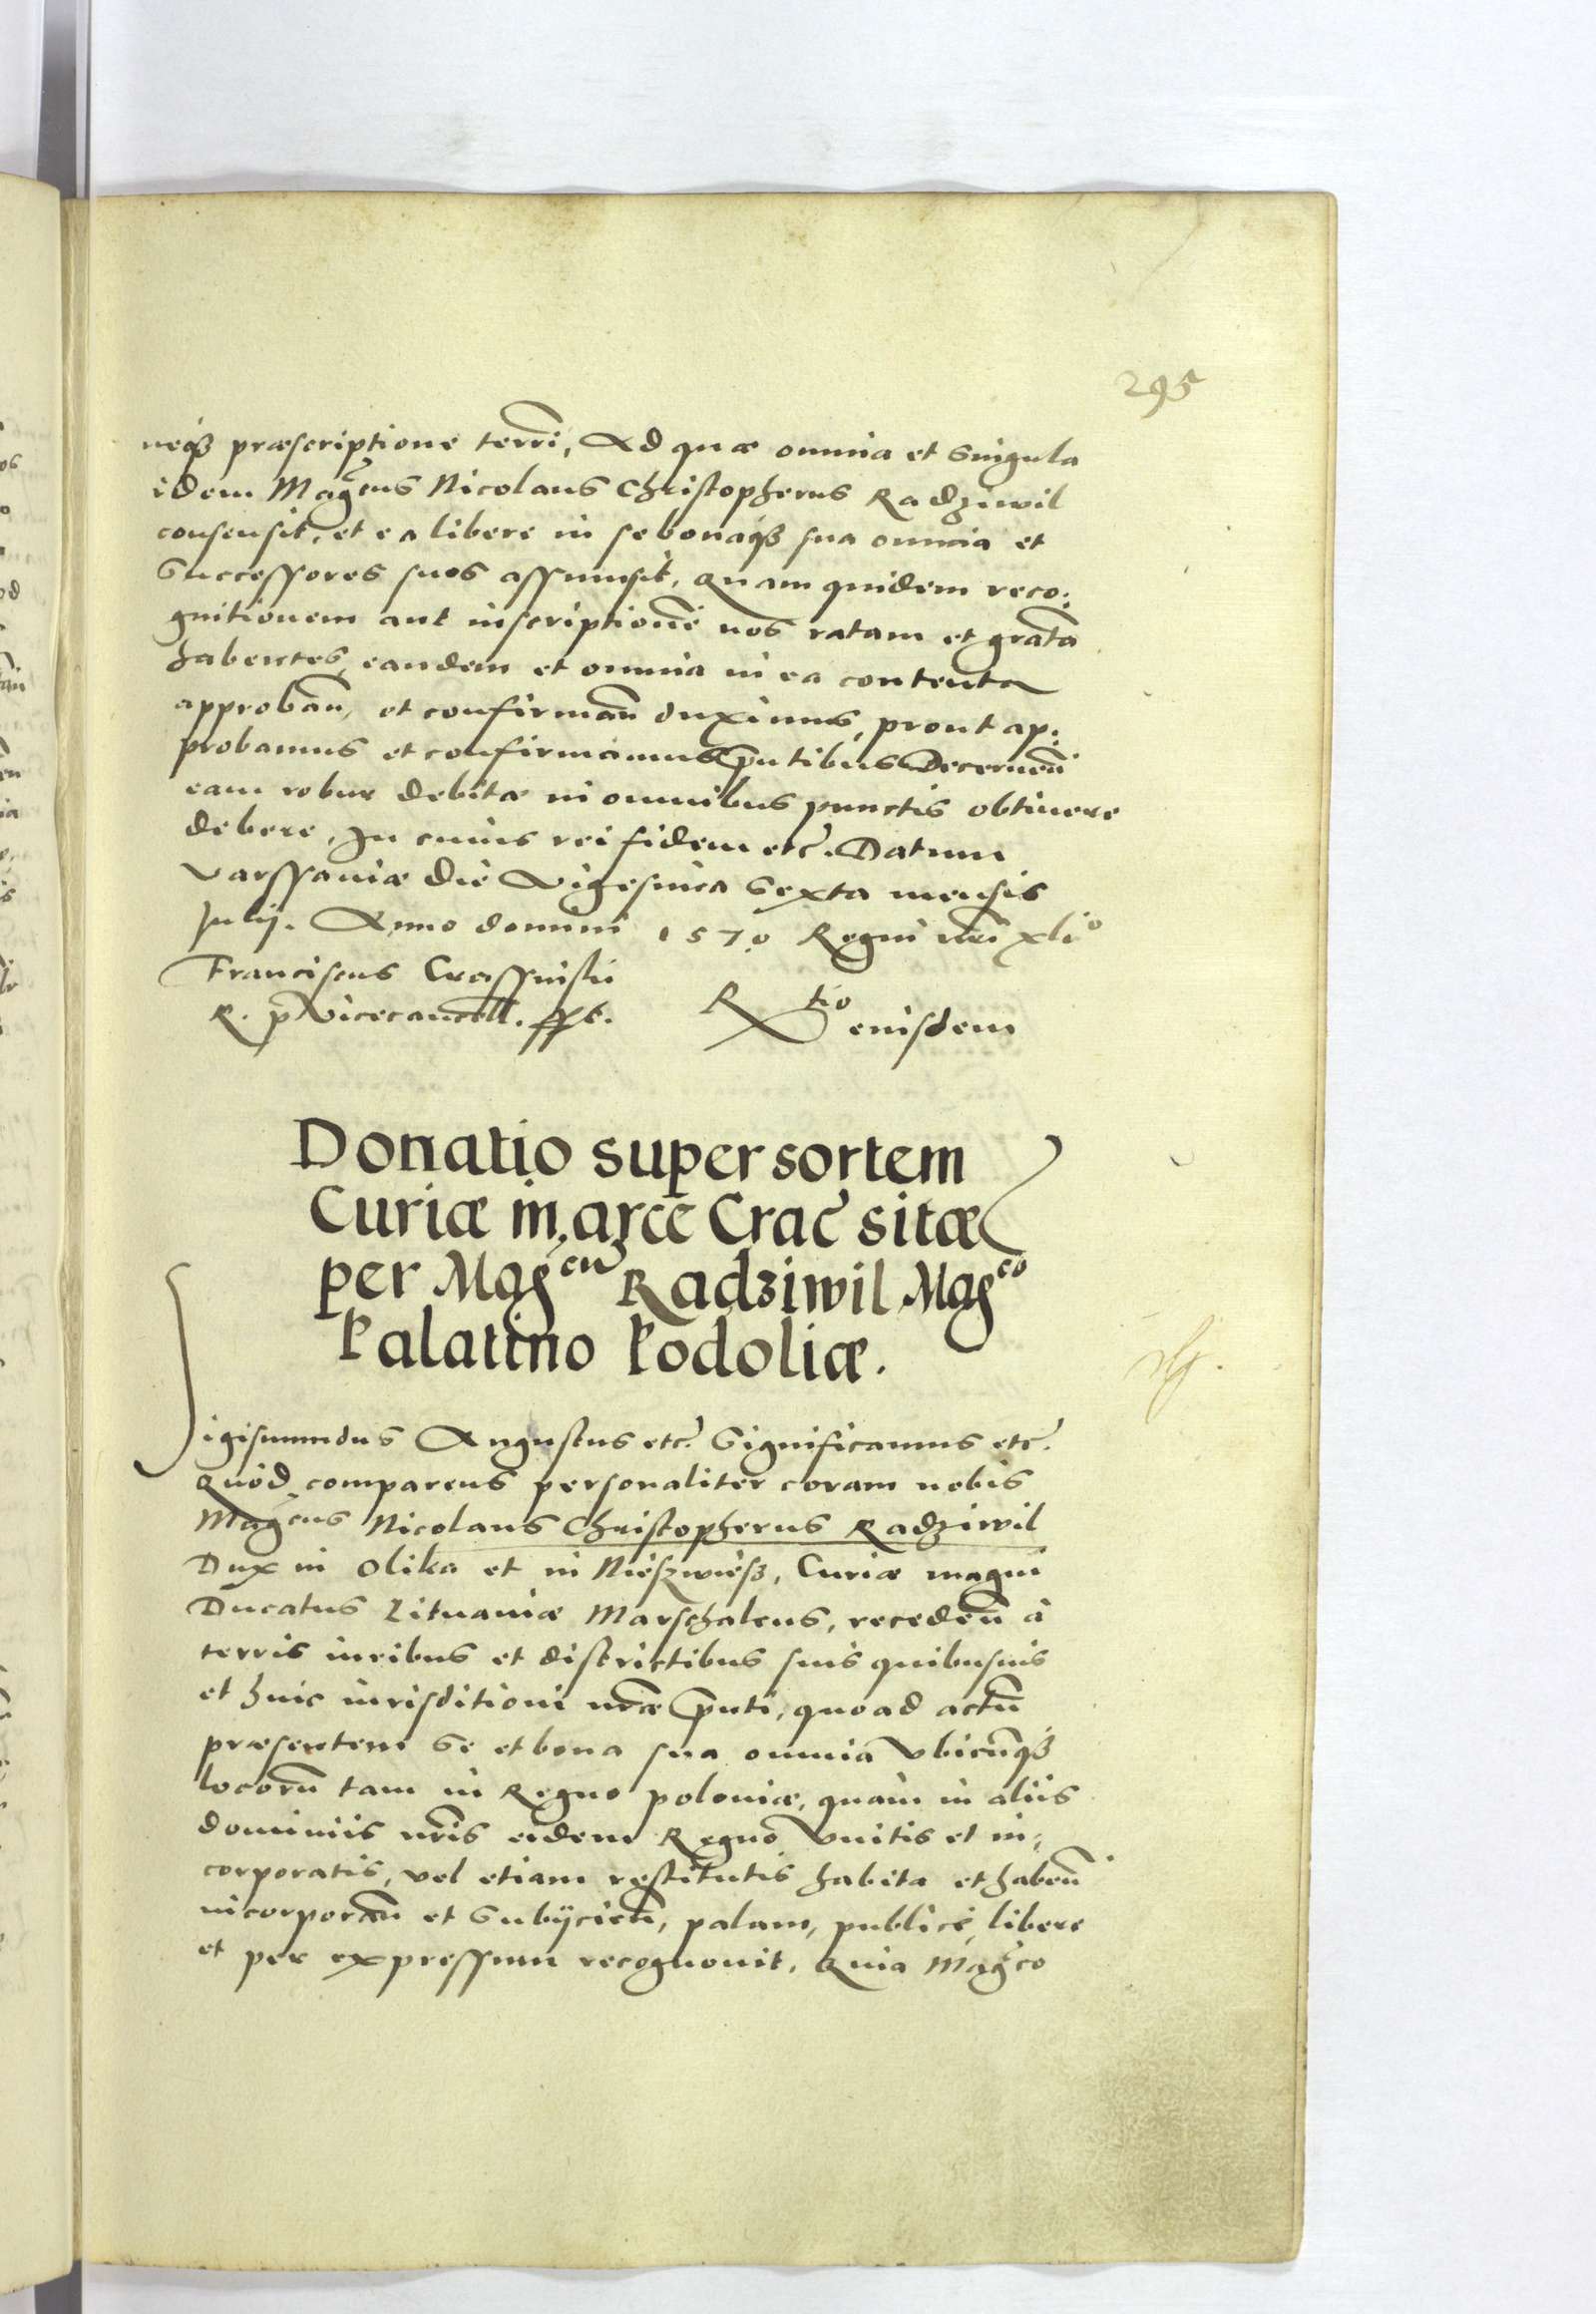 295
neqꝫ præscriptione terri, Ad quæ omnia et Singula
idem Magcus Nicolaus Christopherus Radziwil
consensit, et ea libere in se bonaqꝫ sua omnia et
Successores suos assumsit, Quam quidem reco:
gnitionem aut inscriptione nos ratam et grata
habentes eandem et omnia in ea contenta
approban, et confirman duximus, prout ap:
probamus et confirmamus pntibus Decernen
eam robur debitæ in omnibus punctis obtinere
debere, In cuius rei fidem etc. Datum
Varssaviæ die Vigesima Sexta mensis
Julij. Anno domini 1570 Regni nri xlio
Franciscus Crassinski
R. p Vicecancell. sspt.
Rtio eiusdem
Donatio super sortem
Curiæ in arce Crac sitæ
per Magcu Radziwil Magco
Palatino Podoliæ.
Sigismundus Augustus etc. Significamus etc.
Quod comparens personaliter coram nobis
Magcus Nicolaus Christopherus Radziwil
Dux in Olika et in Nieszwiesz, Curiæ magni
Ducatus Lituaniæ Marschalcus, receden à
terris iuribus et districtibus suis quibusuis
et huic iurisditioni nræ pnti, quoad actu
præsentem Se et bona sua omnia vbicunqꝫ
locoru tam in Regno poloniæ, quàm in aliis
dominiis nris eidem Regno Vnitis et in:
corporatis, vel etiam restitutis habita et haben
incorporan et Subÿcien, palam, publicè, libere
et per expressum recognouit, Quia Magco